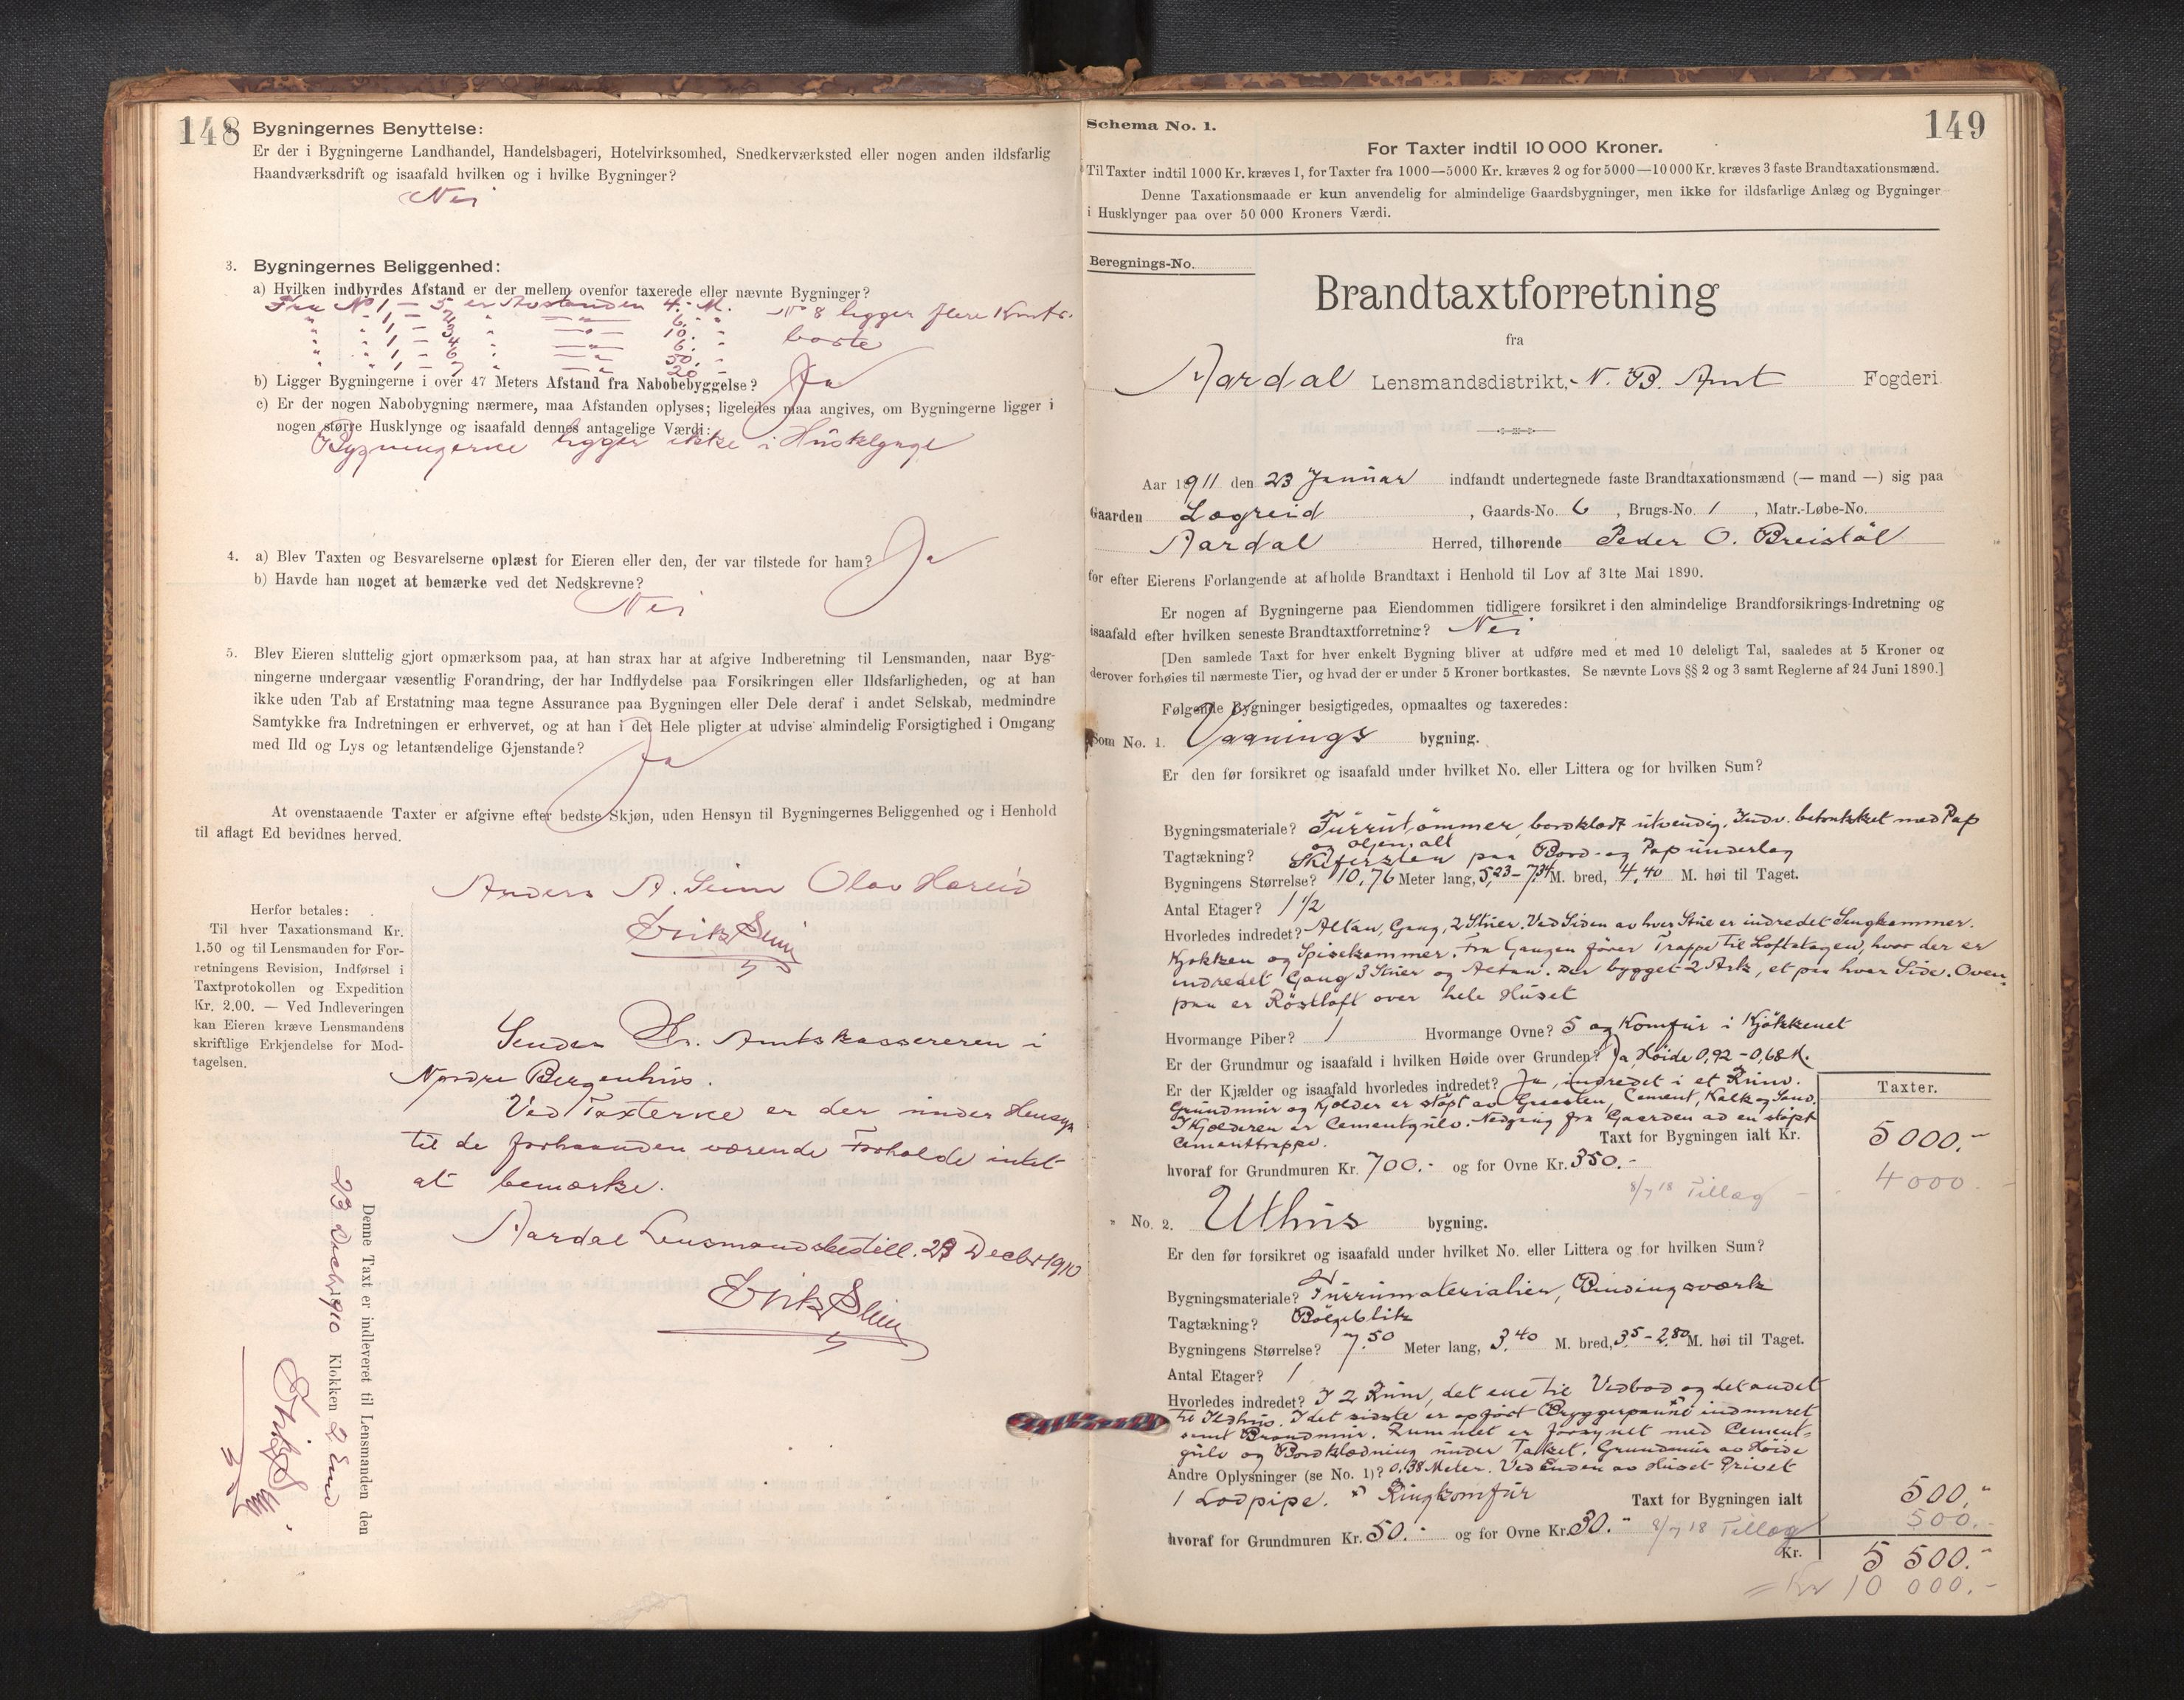 148
Bygningernes Benyttelse:
Er der i Bygningerne Landhandel, Handelsbageri, Hotelvirksomhed, Snedkerværksted eller nogen anden ildsfarlig
Haandværksdrift og isaafald hvilken og i hvilke Bygninger?
Nei
3. Bygningernes Beliggenhed:
a) Hvilken indbyrdes Afstand er der mellem ovenfor taxerede eller nævnte Bygninger?
Fra No 1 – 5 er Avstanden 4.- M. No 8 ligger flere Kmtr.
" " 1, – 2 " —"— 6. " "
" " 1, – 3 " —"— 10. " borte
" " 1, – 4 " —"— 6. "
" " 1 – 6 " —"— 50. "
" " 1 – 7 " —"— 20. "
b) Ligger Bygningerne i over 47 Meters Afstand fra Nabobebyggelse? Ja
c) Er der nogen Nabobygning nærmere, maa Afstanden oplyses; ligeledes maa angives, om Bygningerne ligger i
nogen større Husklynge og isaafald dennes antagelige Værdi:
Bygningerne ligger ikke i Husklynge
4. a) Blev Taxten og Besvarelserne oplæst for Eieren eller den, der var tilstede for ham? Ja
b) Havde han noget at bemærke ved det Nedskrevne?
Nei
5. Blev Eieren sluttelig gjort opmærksom paa, at han strax har at afgive Indberetning til Lensmanden, naar Byg-
ningerne undergaar væsentlig Forandring, der har Indflydelse paa Forsikringen eller Ildsfarligheden, og at han
ikke uden Tab af Erstatning maa tegne Assurance paa Bygningen eller Dele deraf i andet Selskab, medmindre
Samtykke fra Indretningen er erhvervet, og at han i det Hele pligter at udvise almindelig Forsigtighed i Omgang
med Ild og Lys og letantændelige Gjenstande?
Ja
At ovenstaaende Taxter er afgivne efter bedste Skjøn, uden Hensyn til Bygningernes Beliggenhed og i Henhold
til aflagt Ed bevidnes herved.
Anders A. Seim Olav Hæreid
Erik Seim
Herfor betales:
Til hver Taxationsmand Kr.
1.50 og til Lensmanden for For-
retningens Revision, Indførsel i
Taxtprotokollen og Expedition
Kr. 2.00. — Ved Indleveringen
kan Eieren kræve Lensmandens
skriftlige Erkjendelse for Mod-
tagelsen.
Sendes Hr. Amtskassereren i
Nordre Bergenhus.
Ved Taxterne er der under Hensyn
til de forhaanden værende Forholde intet
at bemærke.
Aardal Lensmandsbestill. 23 Decbr 1910
Erik Seim
Denne Taxt er indleveret til Lensmanden den
23 Decbr. 1910 Klokken 2 Emd
Erik Seim
149
Schema No. 1.
For Taxter indtil 10 000 Kroner.
Til Taxter indtil 1000 Kr. kræves 1, for Taxter fra 1000—5000 Kr. kræves 2 og for 5000—10 000 Kr. kræves 3 faste Brandtaxationsmænd.
Denne Taxationsmaade er kun anvendelig for almindelige Gaardsbygninger, men ikke for ildsfarlige Anlæg og Bygninger
i Husklynger paa over 50 000 Kroners Værdi.
Beregnings-No.
Brandtaxtforretning
fra
Aardal Lensmandsdistrikt, N. B. Amt Fogderi
Aar 1911 den 23 Januar indfandt undertegnede faste Brandtaxationsmænd (— mand —) sig paa
Gaarden Lægreid, Gaards-No. 6, Brugs-No. 1, Matr.-Løbe-No.
Aardal Herred, tilhørende Peder O. Breistøl
for efter Eierens Forlangende at afholde Brandtaxt i Henhold til Lov af 31te Mai 1890.
Er nogen af Bygningerne paa Eiendommen tidligere forsikret i den almindelige Brandforsikrings-Indretning og
isaafald efter hvilken seneste Brandtaxtforretning? Nei
[Den samlede Taxt for hver enkelt Bygning bliver at udføre med et med 10 deleligt Tal, saaledes at 5 Kroner og
derover forhøies til nærmeste Tier, og hvad der er under 5 Kroner bortkastes. Se nævnte Lovs §§ 2 og 3 samt Reglerne af 24 Juni 1890.]
Følgende Bygninger besigtigedes, opmaaltes og taxeredes:
Som No. 1. Vaanings bygning.
Er den før forsikret og isaafald under hvilket No. eller Littera og for hvilken Sum?
Bygningsmateriale? Furrutømmer, bordklædt utvendig. Indv. betrukket med Pap
og oljemalt
Tagtækning? Skifersten paa Bord- og Papunderlag
Bygningens Størrelse? 10,76 Meter lang, 5,23 – 7,34 M. bred, 4,40 M. høi til Taget.
Antal Etager? 1 1/2
Hvorledes indredet? Altan, Gang, 2 Stuer. Ved Siden av hver Stue er indredet Sengkammer.
Kjøkken og Spisekammer. Fra Gangen fører Trappe til Loftetagen, hvor der er
indredet Gang 3 Stuer og Altan. Der bygget 2 Ark, et paa hver Side. Oven-
paa er Röstloft over hele Huset
Hvormange Piber? 1 Hvormange Ovne? 5 og Komfur i Kjøkkenet
Er der Grundmur og isaafald i hvilken Høide over Grunden? Ja, Høide 0,92 – 0,68 M.
Er der Kjælder og isaafald hvorledes indredet? Ja, indredet i et Rum.
Grundmur og Kjælder er støpt av Graasten, Cement, Kalk og Sand.
I Kjælderen er Cementgulv. Nedgang fra Gaarden ad en støpt
Cementtrappe.
Taxter.
Taxt for Bygningen ialt Kr. 5000.-
hvoraf for Grundmuren Kr. 700.- og for Ovne Kr. 350.-
8/7 18 Tillæg – 4000.-
" No. 2. Uthus bygning.
Er den før forsikret og isaafald under hvilket No. eller Littera og for hvilken Sum?
Bygningsmateriale? Furrumaterialier, Bindingsværk
Tagtækning? Bølgeblik
Bygningens Størrelse? 7.50 Meter lang, 3.40 M. bred, 3.5 – 2.80 M. høi til Taget.
Antal Etager? 1
Hvorledes indredet? I 2 Rum, det ene til Vedbod og det andet
til Ildhus. I det sidste er opført Bryggerpanne indmuret
samt Brandmur. Rummet er forsynet med Cement-
gulv og Bordklædning under Taket. Grundmur av Høide
Andre Oplysninger (se No. 1)? 0,38 Meter. Ved Enden av Huset Privet
1 Lodpipe. x) Ringkomfur
Taxt for Bygningen ialt 500,-
hvoraf for Grundmuren Kr. 50.- og for Ovne Kr. 30.- 8/7 18 Tillæg 500.-
Kr. 5 500.-
= Kr 10 000.-